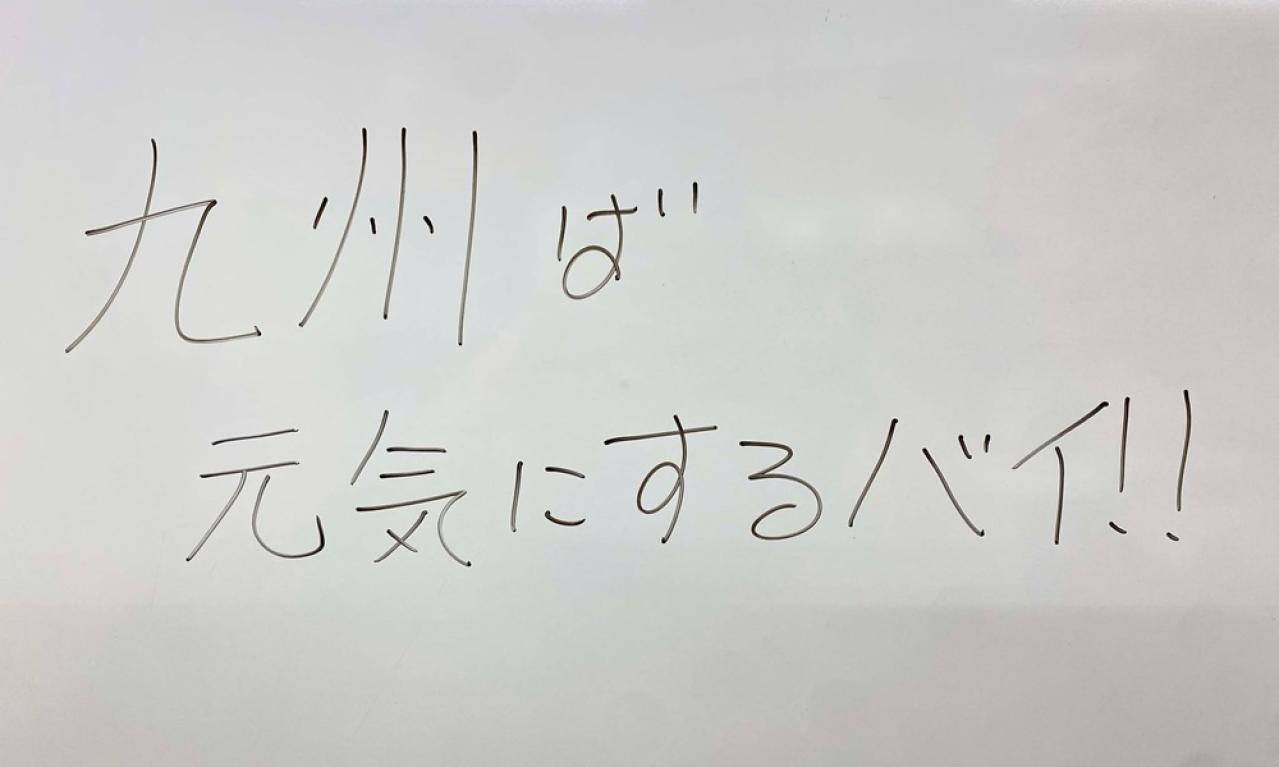 九州ば
元気にするバイ!!